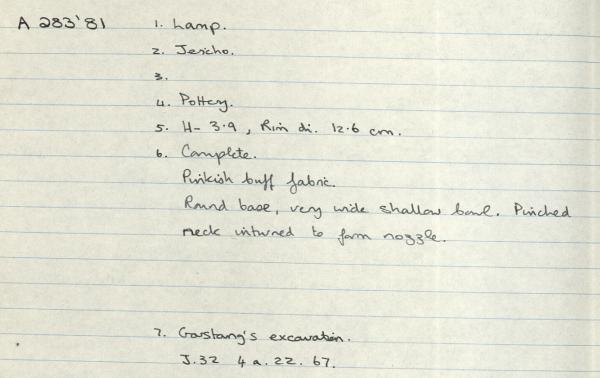 A 283'81 1. Lamp.
2. Jericho.
3.
4. Pottery.
5. H- 3.9, Rim di. 12.6 cm.
6. Complete.
Pinkish buff fabric.
Round base, very wide shallow bowl. Pinched
neck inturned to form nozzle.
7. Garstang's excavation.
J.32 4a.22.67.